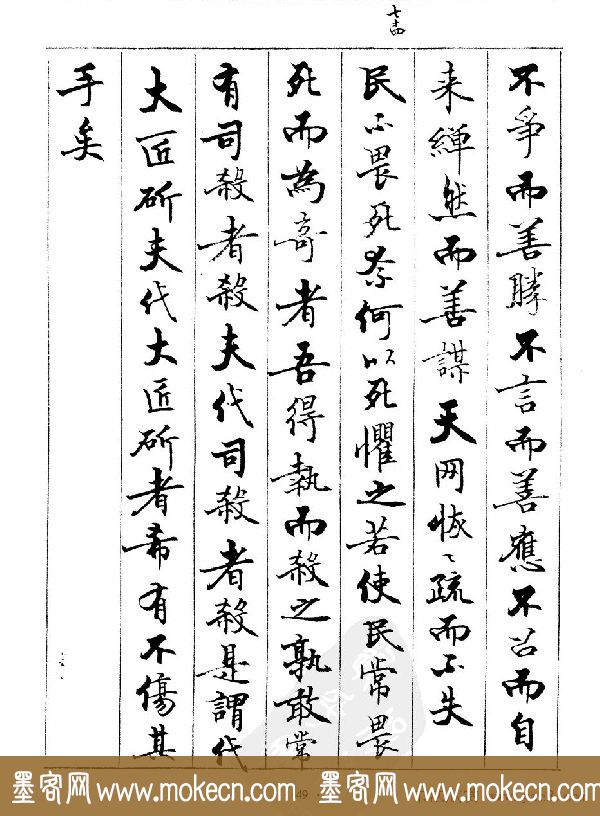 七十四
不爭而善勝不言而善應不召而自
来繟然而善謀天网恢〻疏而不失
民不畏死奈何以死懼之若使民常畏
死而為奇者吾得執而殺之孰敢常
有司殺者殺夫代司殺者殺是謂代
大匠斫夫代大匠斫者希有不傷其
手矣
49
墨客网 www.mokecn.com 墨客网 www.mokecn.com 墨客网 www.mokecn.com